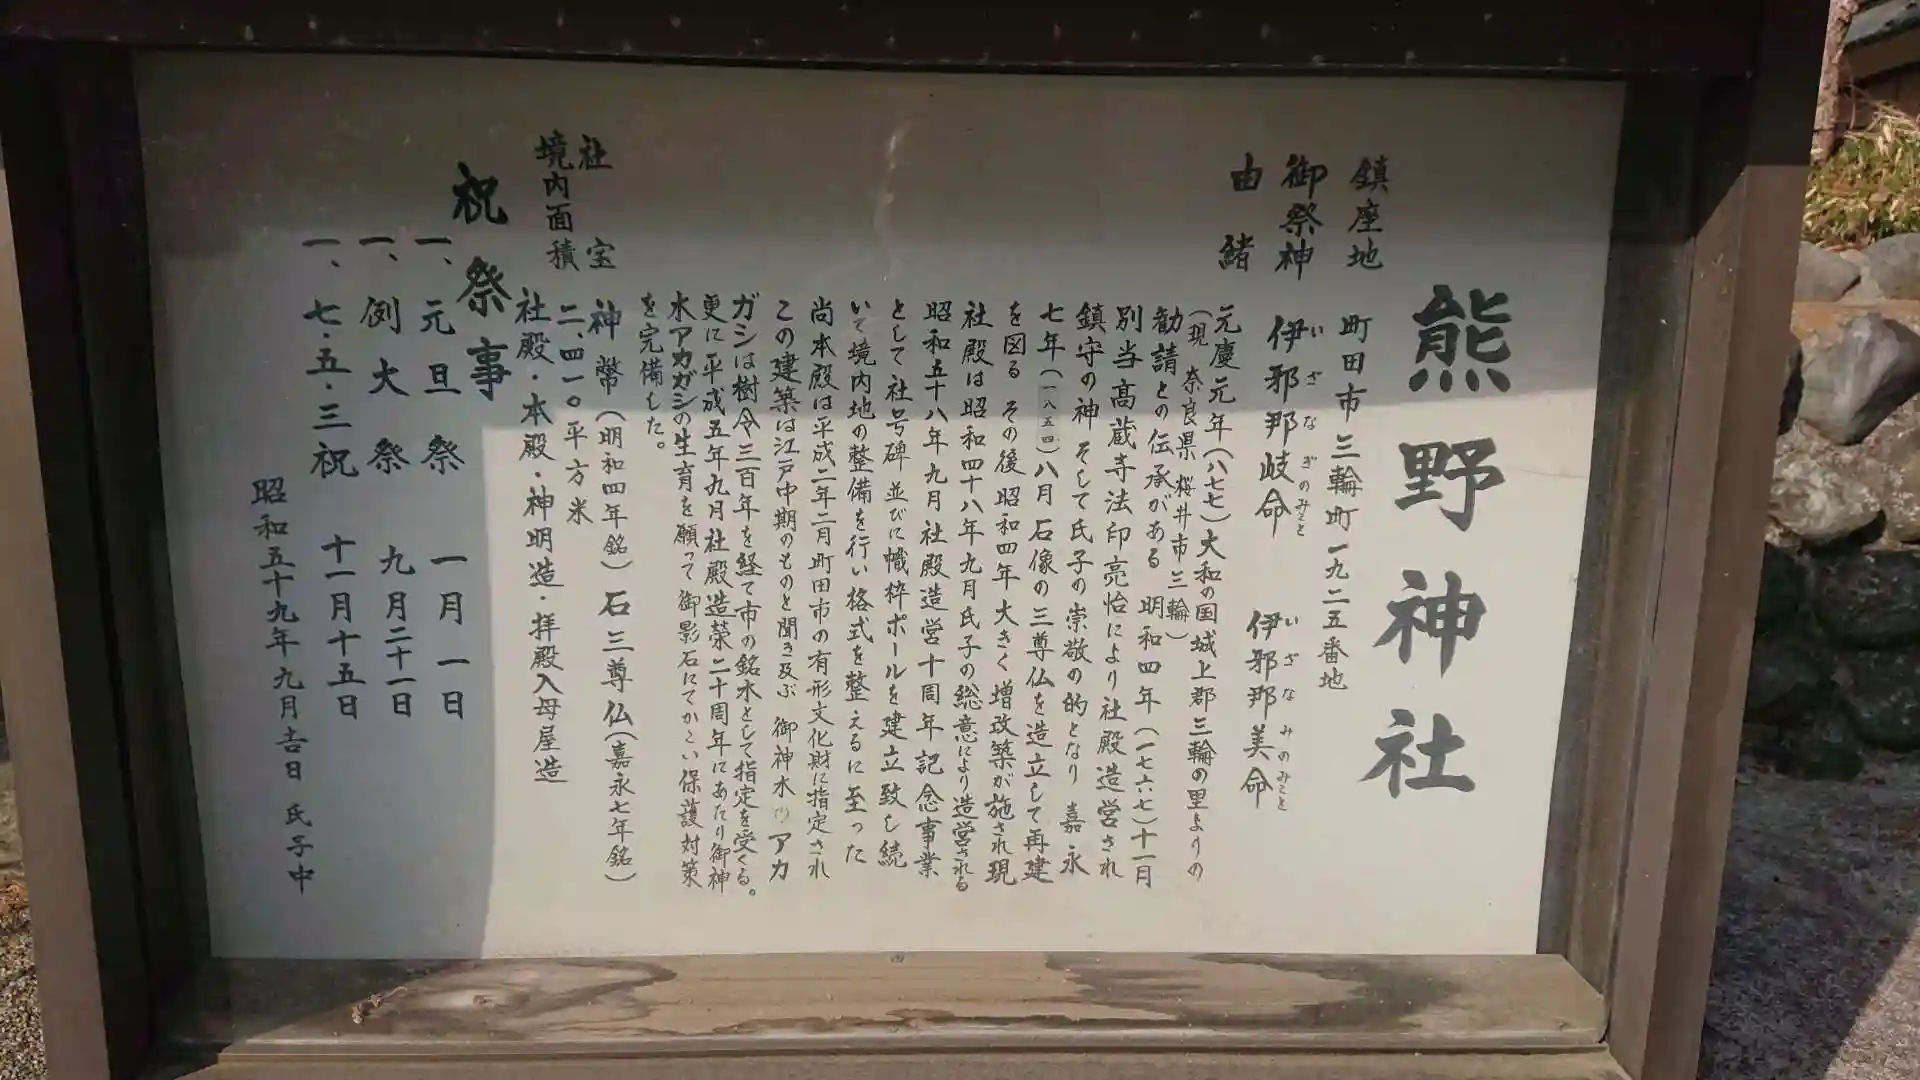 熊野神社
鎮座地 町田市三輪町一九二五番地
御祭神 伊邪那岐命 伊邪那美命
いざなぎのみこと いざなみのみこと
由緒 元慶元年(八七七)大和の国城上郡三輪の里よりの
(現 奈良県 桜井市三輪)
勧請との伝承がある 明和四年(一七六七)十一月
別当高蔵寺法印亮怡により社殿造営され
鎮守の神 そして氏子の崇敬の的となり 嘉永
七年(一八五四)八月 石像の三尊仏を造立して再建
を図る その後昭和四年大きく増改築が施され現
社殿は昭和四十八年九月氏子の総意により造営される
昭和五十八年九月社殿造営十周年記念事業
として社号碑並びに幟枠ポールを建立致し続
いて境内地の整備を行い格式を整えるに至った
尚本殿は平成二年二月町田市の有形文化財に指定され
この建築は江戸中期のものと聞き及ぶ 御神木のアカ
ガシは樹令三百年を経て市の銘木として指定を受くる。
更に平成五年九月社殿造栄二十周年にあたり御神
木アカガシの生育を願って御影石にてかこい保護対策
を完備した。
社宝 神幣(明和四年銘)石三尊仏(嘉永七年銘)
境内面積 二、四一〇平方米
社殿・本殿・神明造・拝殿入母屋造
祝祭事
一、元旦祭 一月一日
一、例大祭 九月二十一日
一、七・五・三祝 十一月十五日
昭和五十九年九月吉日 氏子中